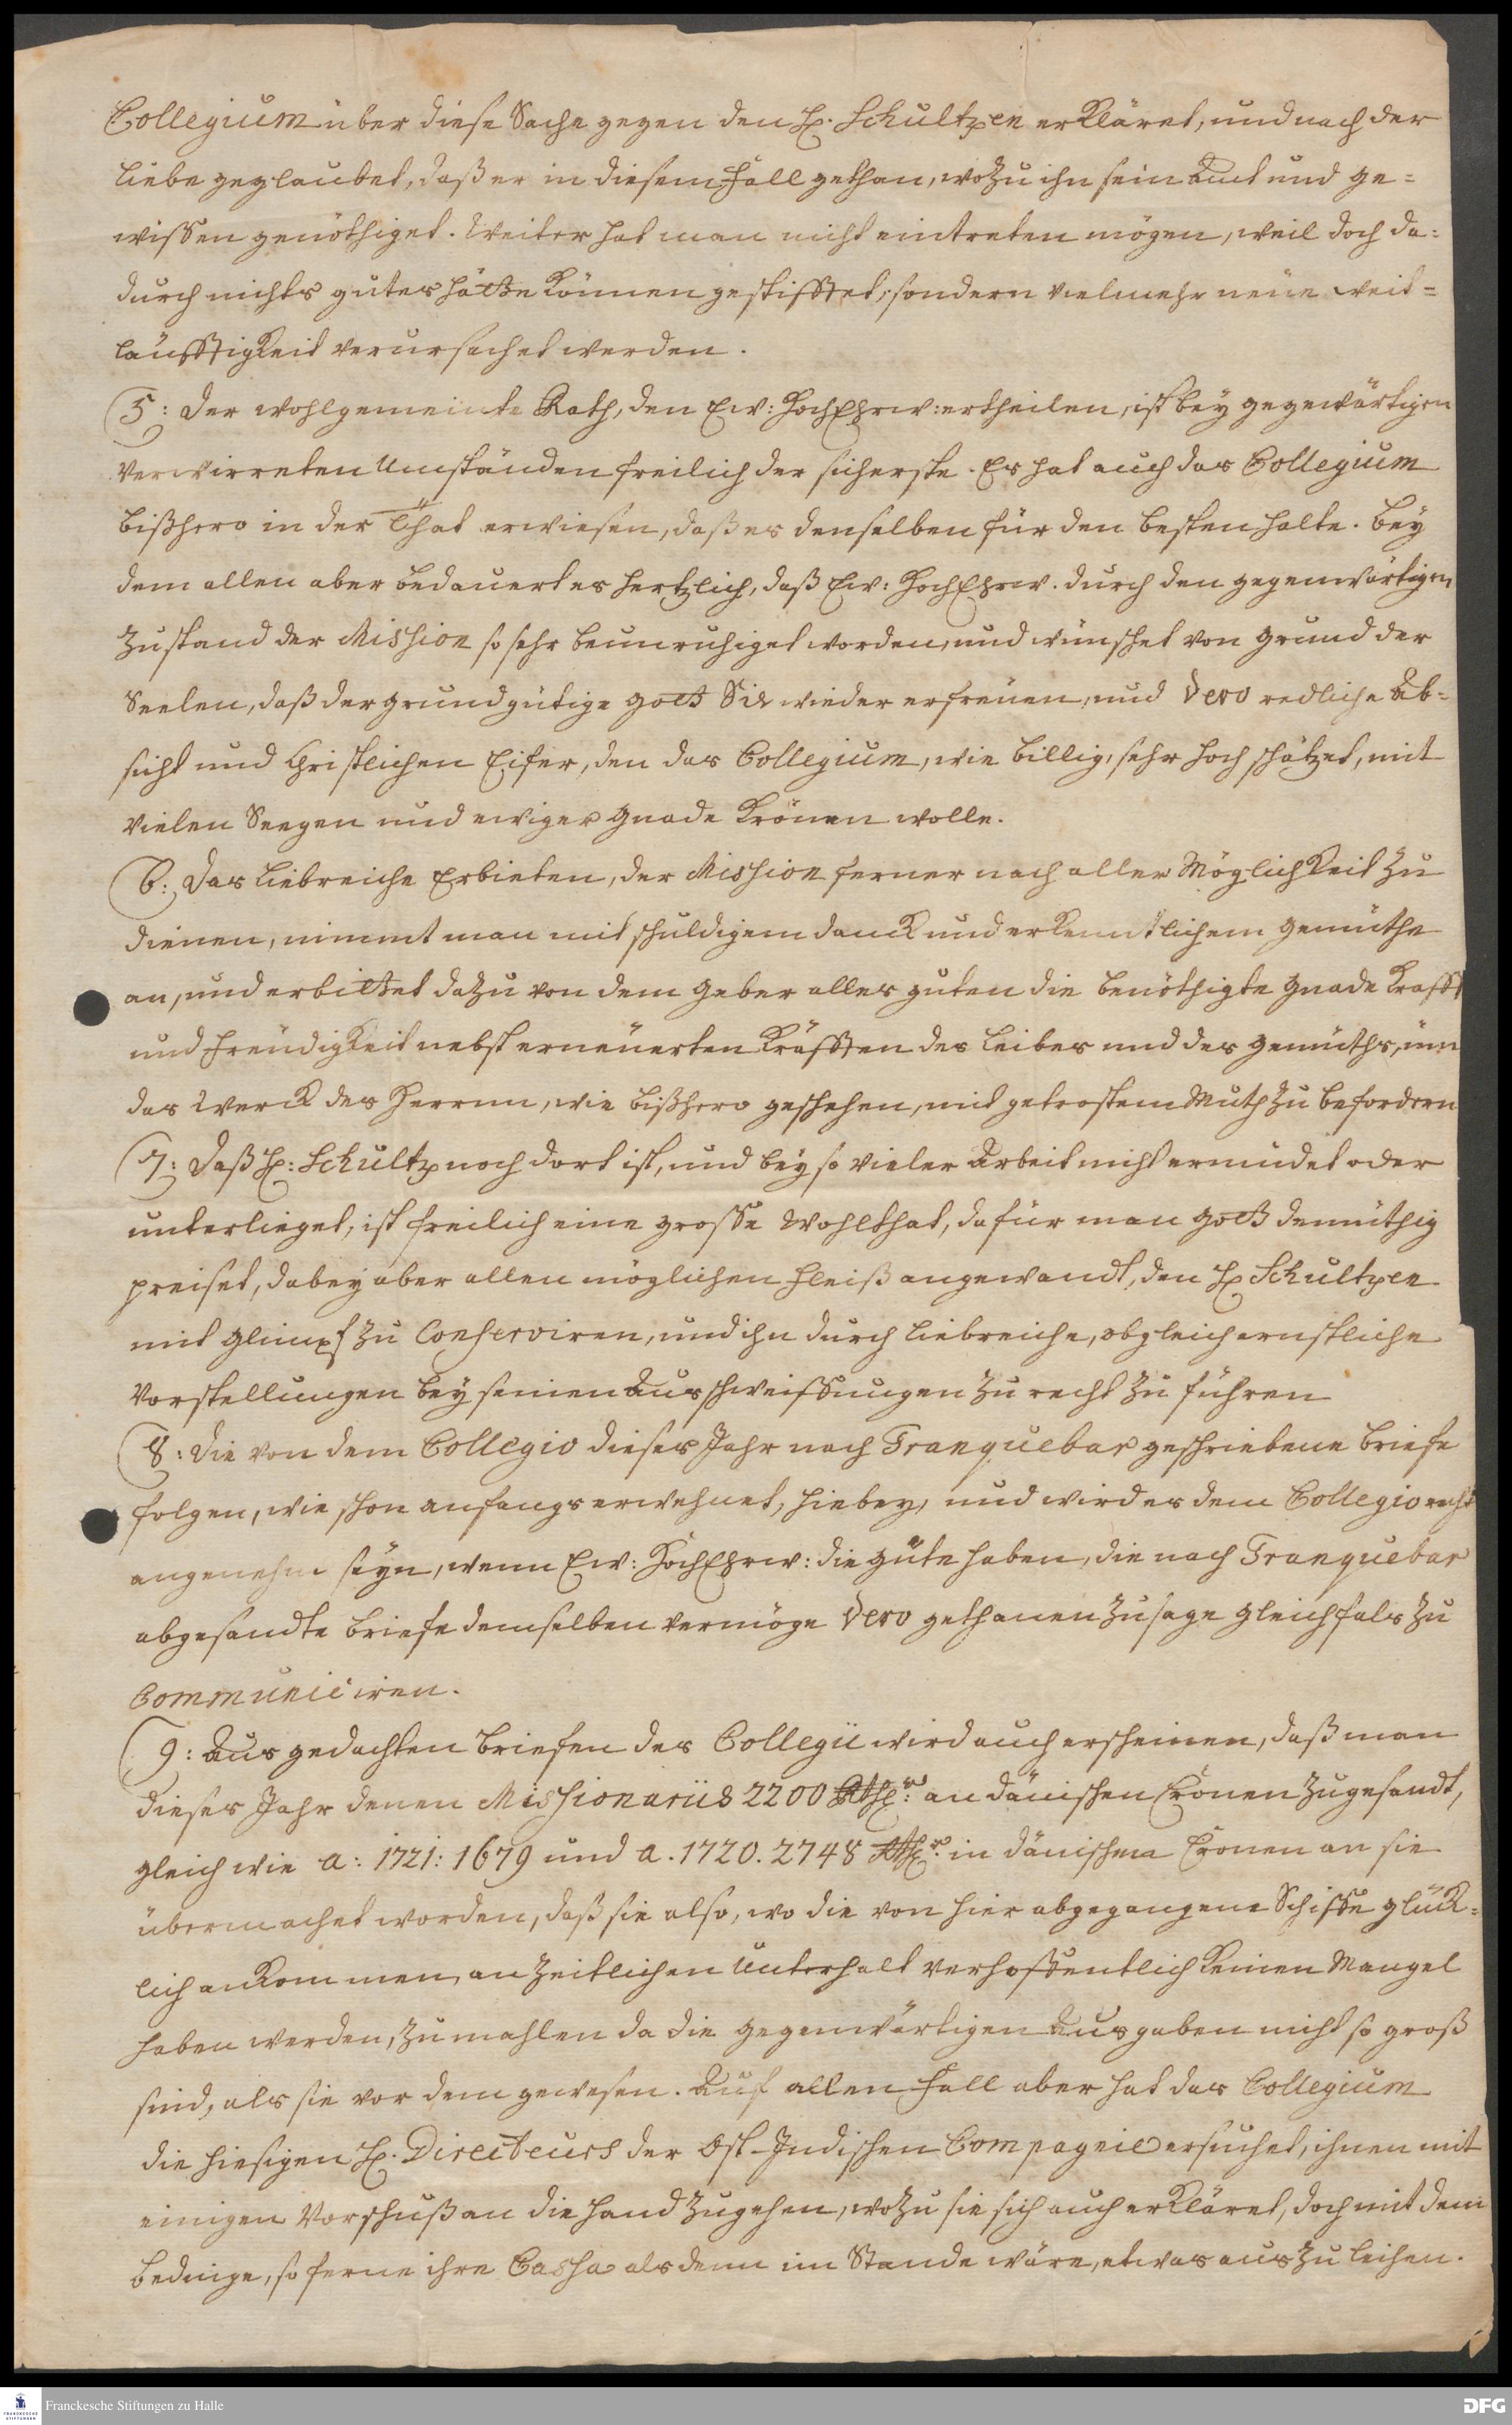 Collegium über diese Sache gegen den H. Schultzen erkläret, und nach der
Liebe geglaubet, daß er in diesem Fall gethan, wozu ihn sein Amt und Ge-
wissen genöthiget. Weiter hat man nicht eintreten mögen, weil doch da-
durch nichts gutes hätte können gestifftet, sondern vielmehr neue Weit-
läufftigkeit verursachet werden.
5: Der wohlgemeinte Rath, den Ew: HochEhrw: ertheilen, ist bey gegewärtigen
verwirreten Umständen freilich der sicherste. Es hat auch das Collegium
bißhero in der That erwiesen, daß es denselben für den besten halte. Bey
dem allen aber bedauert es hertzlich, daß Ew: HochEhrw. durch den gegenwärtigen
Zustand der Mission so sehr beunruhiget worden, und wünschet von Grund der
Seelen, daß der grundgütige Gott Sie wieder erfreuen, und Dero redliche Ab-
sicht und Christlichen Eifer, den das Collegium, wie billig, sehr hoch schätzet, mit
vielen Seegen und ewiger Gnade krönen wolle.
6: Das liebreiche Erbieten, der Mission ferner nach aller Möglichkeit zu
dienen, nimmt man mit schuldigem Danck und erkenntlichem Gemüthe
an, und erbittet dazu von dem Geber alles guten die benöthigte Gnade Krafft
und Freudigkeit nebst erneuerten Kräfften des Leibes und des Gemüths, üm
das Werck des Herrnn, wie bißhero geschehen, mit getrostem Muth zu befordern
7: Daß H: Schultz noch dort ist, und bey so vieler Arbeit nicht ermüdet oder
unterlieget, ist freilich eine grosse Wohlthat, dafür man Gott demüthig
preiset, dabey aber allen möglichen Fleiß angewandt, den H Schultzen
mit Glimpf zu Conserviren, und ihn durch liebreiche, obgleich ernstliche
Vorstellungen bey seinen Ausschweiffungen zu recht zu führen
8: Die von dem Collegio dieses Jahr nach Tranquebar geschriebene Briefe
folgen, wie schon anfangs erwehnet, hiebey, und wird es dem Collegio recht
angenehm seyn, wenn Ew: HochEhrw: die Güte haben, die nach Tranquebar
abgesandte Briefe demselben vermöge Dero gethanen Zusage gleichfals zu
Communiciren.
9: Aus gedachten Briefen des Collegii wird auch erscheinen, daß man
dieses Jahr denen Missionariis 2200 Rthlr: an dänischen Cronen zugesandt,
gleich wie a: 1721: 1679 und a. 1720. 2748 Rthlr. in dänischen Cronen an sie
übermachet worden, daß sie also, wo die von hier abgegangene Schiffe glück-
lich ankommen, an zeitlichen Unterhalt verhoffentlich keinen Mangel
haben werden, zumahlen da die gegenwärtigen Ausgaben nicht so groß
sind, als sie vor dem gewesen. Auf allen Fall aber hat das Collegium
die hiesigen H. Directeurs der Ost-Indischen Compagnie ersuchet, ihnen mit
einigen Vorschuß an die Hand zugehen, wozu sie sich auch erkläret, doch mit dem
Bedinge, so ferne ihre Cassa alsdenn im Stande wäre, etwas auszuleihen.
Franckesche Stiftungen zu Halle
DFG